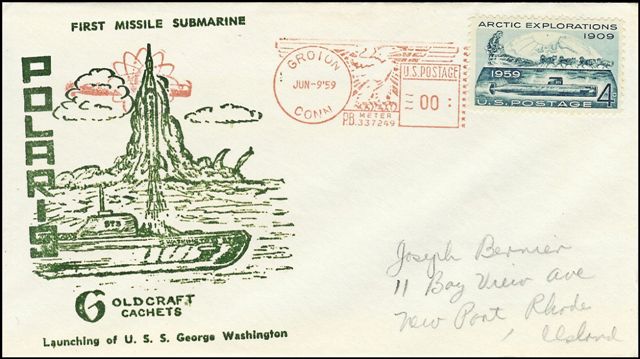 FIRST MISSILE SUBMARINE
POLARIS
598
GOLDCRAFT
CACHETS
Launching of U. S. S. George Washington
GROTON
JUN-9'59
CONN
U.S.POSTAGE
00:
METER
P.B. 337249
ARCTIC EXPLORATIONS
1909
1959
4¢
U.S.POSTAGE
Joseph Bernier
11 Bay View Ave
New Port Rhode
Island